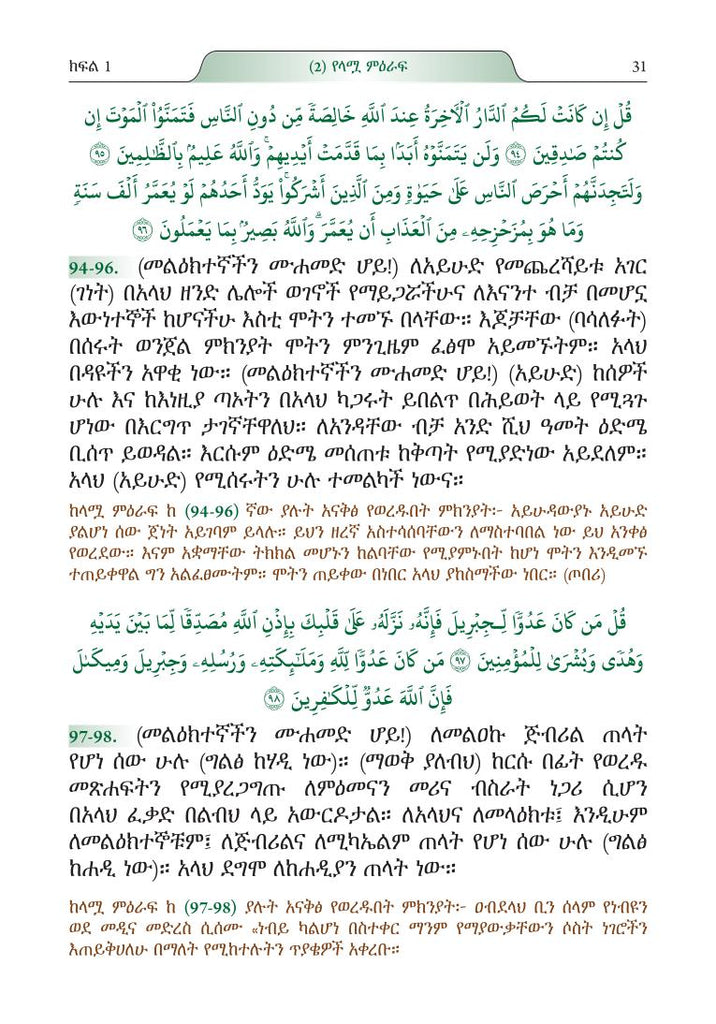 ክፍል 1 (2) የላሟ ምዕራፍ 31
قُلْ إِن كَانَتْ لَكُمُ ٱلدَّارُ ٱلْأَخِرَةُ عِندَ ٱللَّهِ خَالِصَةً مِّن دُونِ ٱلنَّاسِ فَتَمَنَّوُا۟ ٱلْمَوْتَ إِن
كُنتُمْ صَٰدِقِينَ ٩٤ وَلَن يَتَمَنَّوْهُ أَبَدًۢا بِمَا قَدَّمَتْ أَيْدِيهِمْ ۗ وَٱللَّهُ عَلِيمٌۢ بِٱلظَّٰلِمِينَ ٩٥
وَلَتَجِدَنَّهُمْ أَحْرَصَ ٱلنَّاسِ عَلَىٰ حَيَوٰةٍ وَمِنَ ٱلَّذِينَ أَشْرَكُوا۟ ۚ يَوَدُّ أَحَدُهُمْ لَوْ يُعَمَّرُ أَلْفَ سَنَةٍ
وَمَا هُوَ بِمُزَحْزِحِهِۦ مِنَ ٱلْعَذَابِ أَن يُعَمَّرَ ۗ وَٱللَّهُ بَصِيرٌۢ بِمَا يَعْمَلُونَ ٩٦
94-96. (መልዕክተኛችን ሙሐመድ ሆይ!) ለአይሁድ የመጨረሻይቱ አገር
(ገነት) በአላህ ዘንድ ሌሎች ወገኖች የማይጋሯችሁና ለእናንተ ብቻ በመሆኗ
እውነተኞች ከሆናችሁ እስቲ ሞትን ተመኙ በላቸው። እጆቻቸው (ባሳለፉት)
በሰሩት ወንጀል ምክንያት ሞትን ምንጊዜም ፈፅሞ አይመኙትም። አላህ
በዳዩችን አዋቂ ነው። (መልዕክተኛችን ሙሐመድ ሆይ!) (አይሁድ) ከሰዎች
ሁሉ እና ከእነዚያ ጣኦትን በአላህ ካጋሩት ይበልጥ በሕይወት ላይ የሚጓጉ
ሆነው በእርግጥ ታገኛቸዋለህ። ለአንዳቸው ብቻ አንድ ሺህ ዓመት ዕድሜ
ቢሰጥ ይወዳል። እርሱም ዕድሜ መሰጠቱ ከቅጣት የሚያድነው አይደለም።
አላህ (አይሁድ) የሚሰሩትን ሁሉ ተመልካች ነውና።
ከላሟ ምዕራፍ ከ (94-96) ኛው ያሉት አናቅፅ የወረዱበት ምክንያት፦ አይሁዳውያኑ አይሁድ
ያልሆነ ሰው ጀነት አይገባም ይላሉ። ይህን ዘረኛ አስተሳሰባቸውን ለማስተባበል ነው ይህ አንቀፅ
የወረደው። እናም አቋማቸው ትክክል መሆኑን ከልባቸው የሚያምኑበት ከሆነ ሞትን እንዲመኙ
ተጠይቀዋል ግን አልፈፀሙትም። ሞትን ጠይቀው በነበር አላህ ያከስማቸው ነበር። (ጦበሪ)
قُلْ مَن كَانَ عَدُوًّا لِّجِبْرِيلَ فَإِنَّهُۥ نَزَّلَهُۥ عَلَىٰ قَلْبِكَ بِإِذْنِ ٱللَّهِ مُصَدِّقًا لِّمَا بَيْنَ يَدَيْهِ
وَهُدًى وَبُشْرَىٰ لِلْمُؤْمِنِينَ ٩٧ مَن كَانَ عَدُوًّا لِّلَّهِ وَمَلَٰٓئِكَتِهِۦ وَرُسُلِهِۦ وَجِبْرِيلَ وَمِيكَىٰلَ
فَإِنَّ ٱللَّهَ عَدُوٌّ لِّلْكَٰفِرِينَ ٩٨
97-98. (መልዕክተኛችን ሙሐመድ ሆይ!) ለመልዐኩ ጅብሪል ጠላት
የሆነ ሰው ሁሉ (ግልፅ ከሃዲ ነው)። (ማወቅ ያለብህ) ከርሱ በፊት የወረዱ
መጽሐፍትን የሚያረጋግጡ ለምዕመናን መሪና ብስራት ነጋሪ ሲሆን
በአላህ ፈቃድ በልብህ ላይ አውርዶታል። ለአላህና ለመላዕክቱ፤ እንዲሁም
ለመልዕክተኞቹም፤ ለጅብሪልና ለሚካኤልም ጠላት የሆነ ሰው ሁሉ (ግልፅ
ከሐዲ ነው)። አላህ ደግሞ ለከሐዲያን ጠላት ነው።
ከላሟ ምዕራፍ ከ (97-98) ያሉት አናቅፅ የወረዱበት ምክንያት፦ ዐብደላህ ቢን ሰላም የነብዩን
ወደ መዲና መድረስ ሲሰሙ «ነብይ ካልሆነ በስተቀር ማንም የማያውቃቸውን ሶስት ነገሮችን
እጠይቅሀለሁ በማለት የሚከተሉትን ጥያቄዎች አቀረቡ።